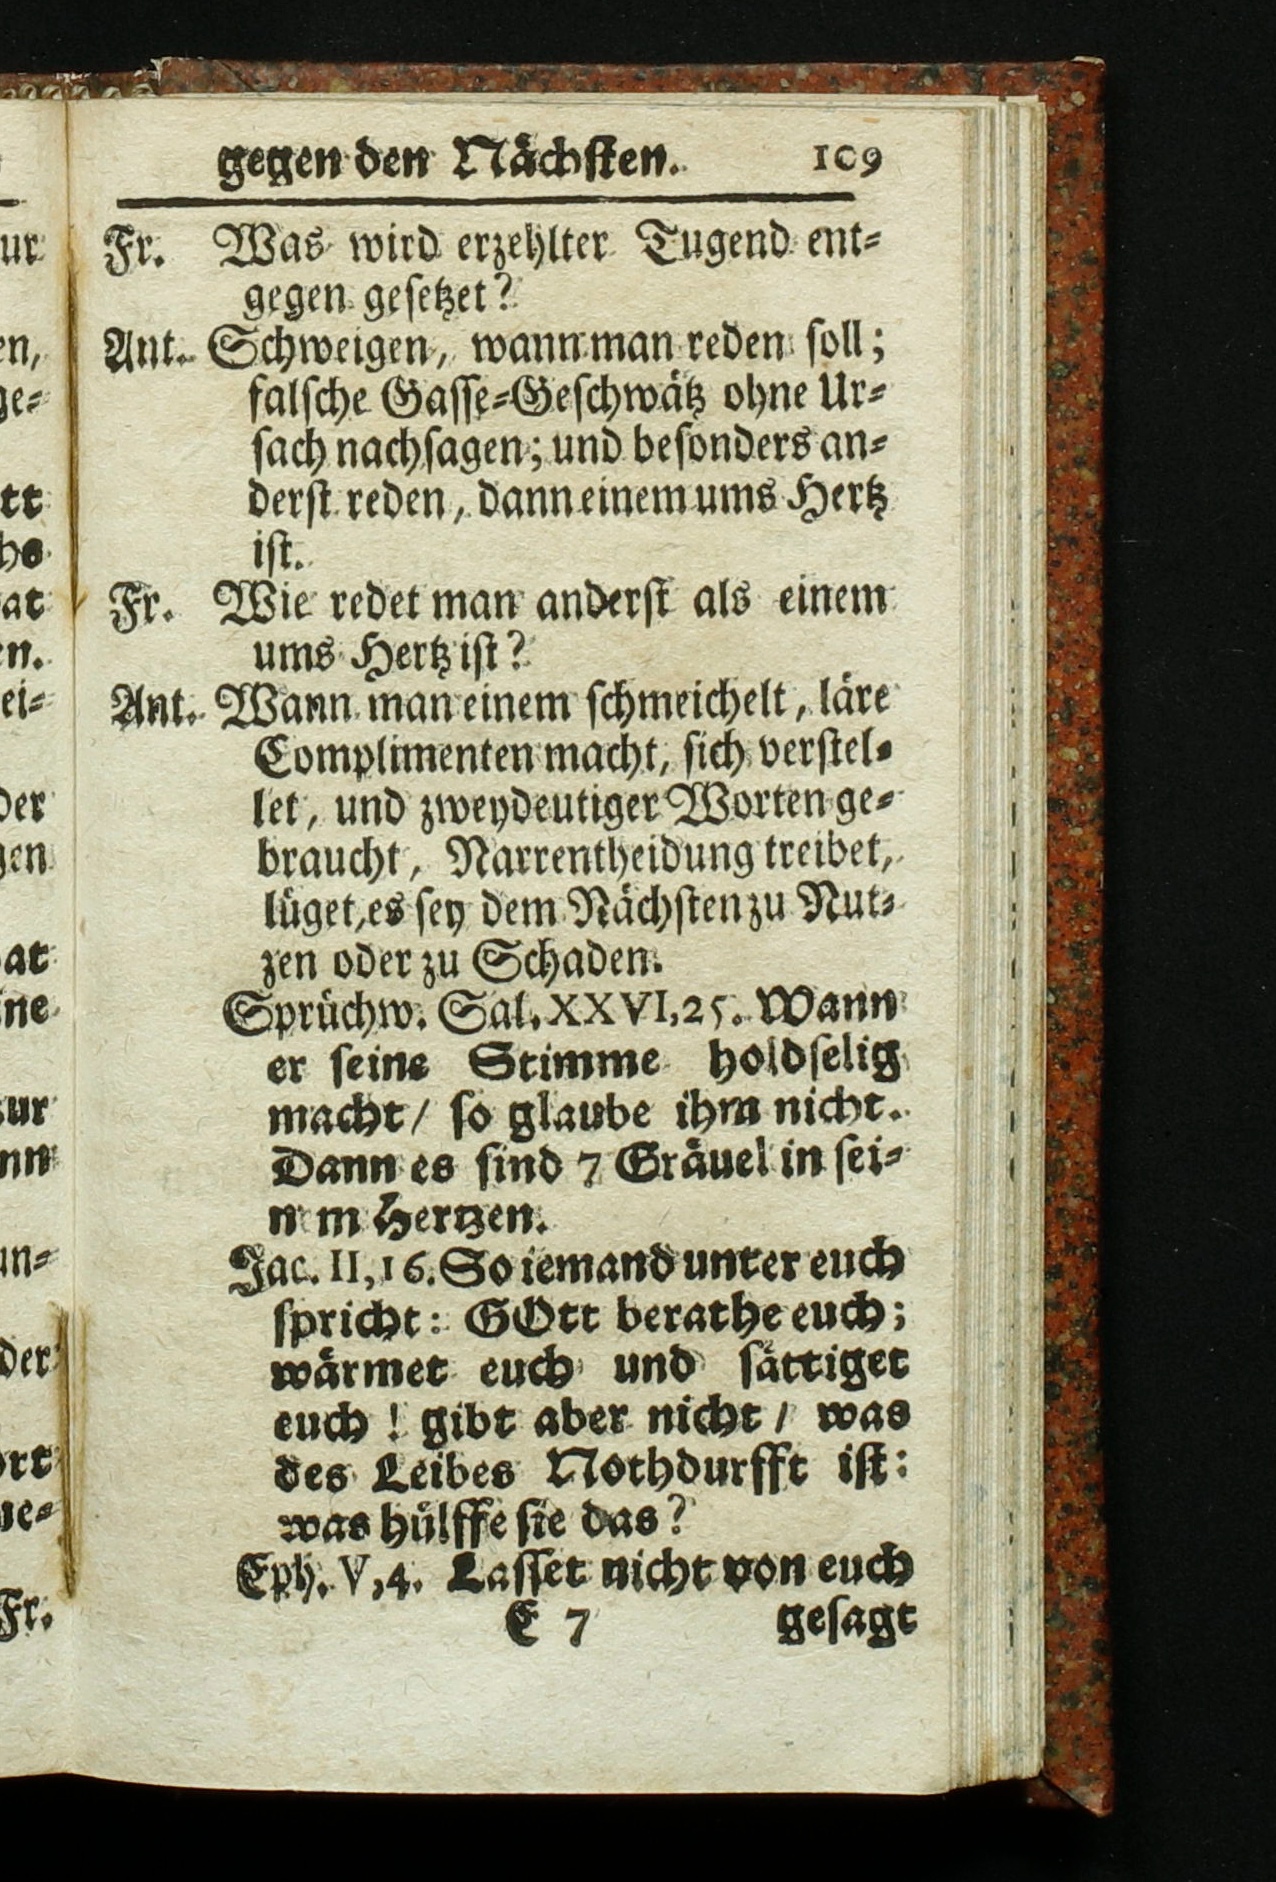 gegen den Nächsten. 109
Fr. Was wird erzehlter Tugend ent-
gegen gesetzet?
Ant. Schweigen, wann man reden soll;
falsche Gasse-Geschwätz ohne Ur-
sach nachsagen; und besonders an-
derst reden, dann einem ums Hertz
ist.
Fr. Wie redet man anderst als einem
ums Hertz ist?
Ant. Wann man einem schmeichelt, läre
Complimenten macht, sich verstel-
let, und zweydeutiger Worten ge-
braucht, Narrentheidung treibet,
lüget, es sey dem Nächsten zu Nut-
zen oder zu Schaden.
Sprüchw. Sal. XXVI, 25. Wann
er seine Stimme holdselig
macht / so glaube ihm nicht.
Dann es sind 7 Gräuel in sei-
n m Hertzen.
Jac. II, 16. So iemand unter euch
spricht: GOtt berathe euch;
wärmet euch und sättiget
euch ! gibt aber nicht / was
des Leibes Nothdurfft ist:
was hülffe sie das?
Eph. V, 4. Lasset nicht von euch
E 7 gesagt